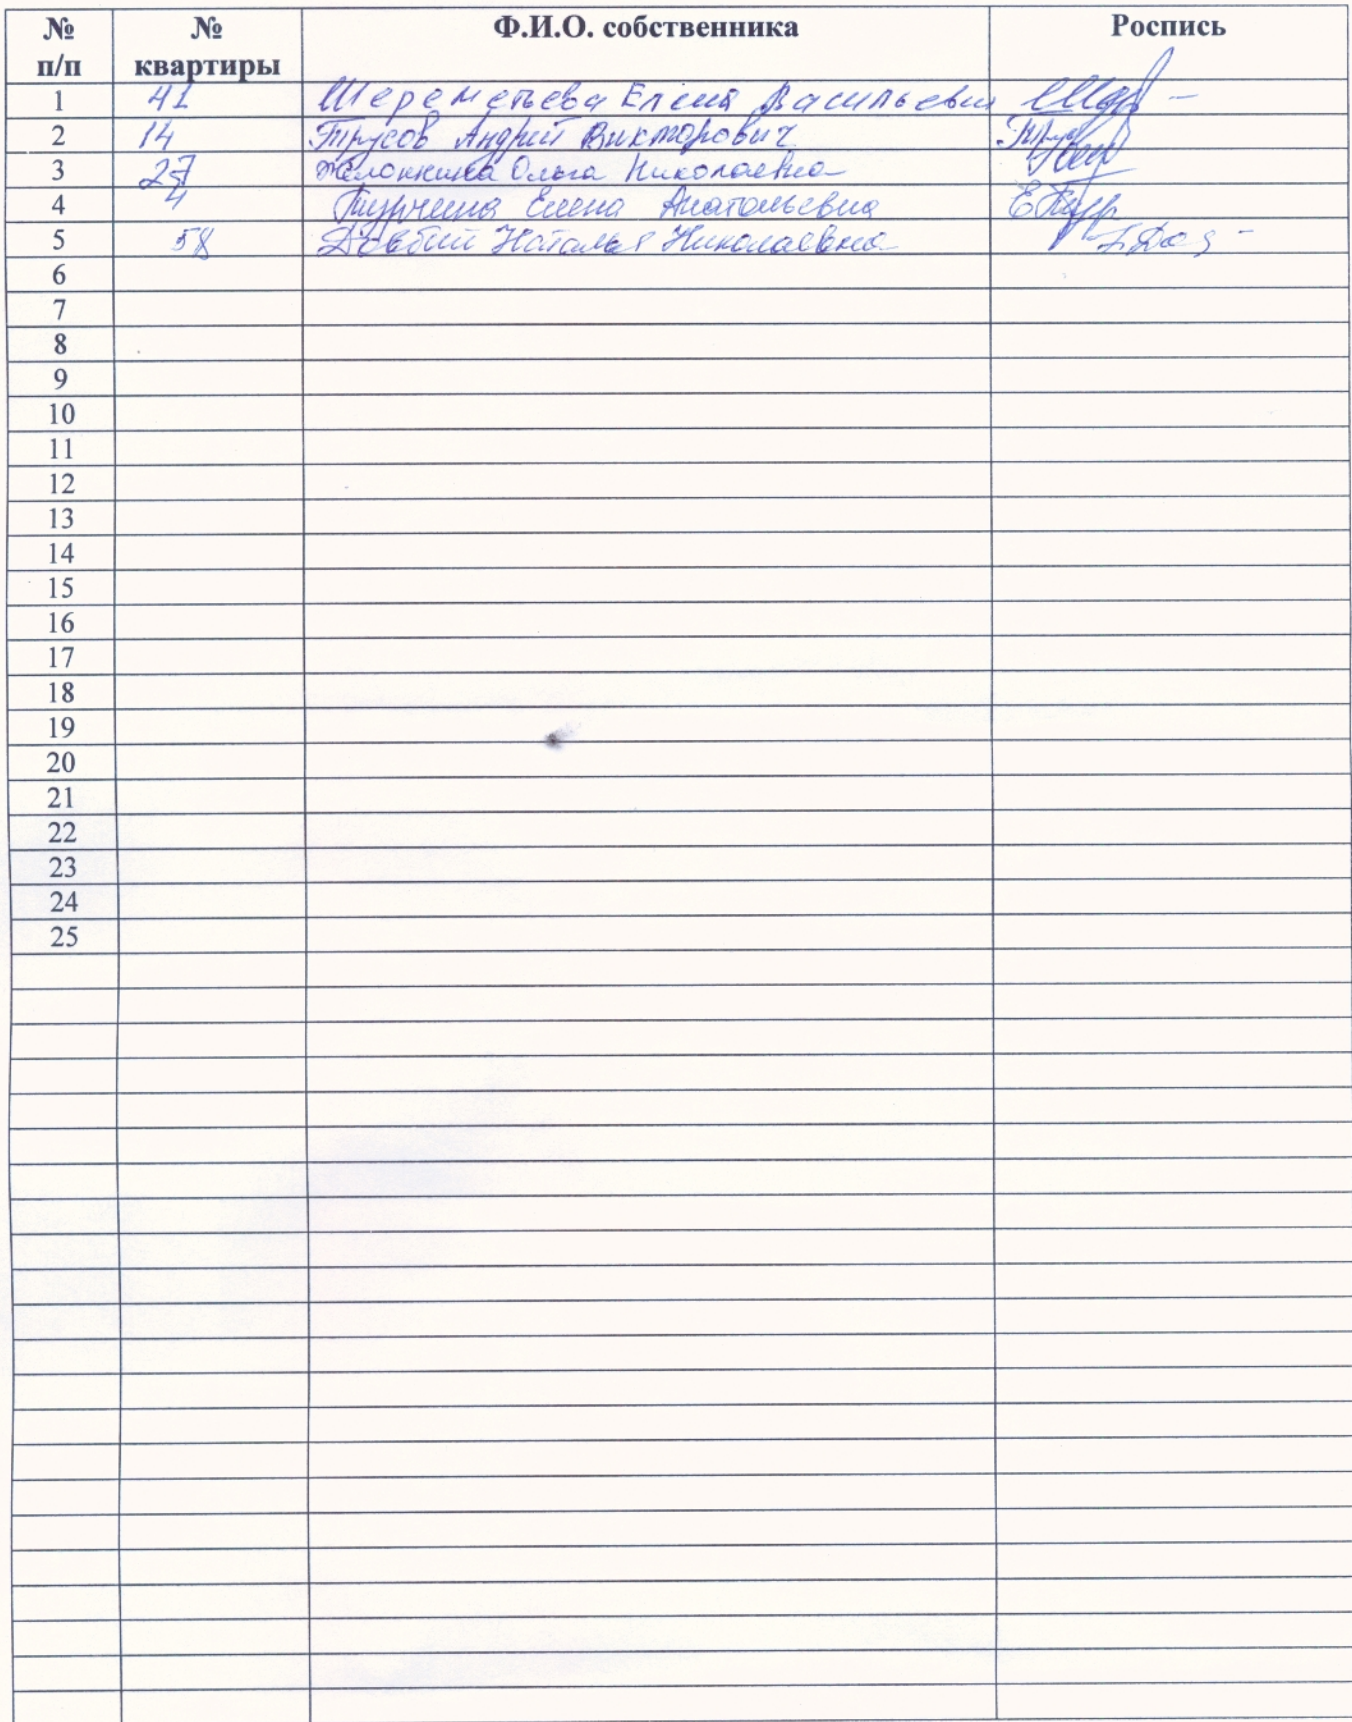 № п/п № квартиры Ф.И.О. собственника Роспись
1 41 Шереметьева Елена Васильевна
2 14 Трусов Андрей Викторович
3 27 Ольга Николаевна
4 4 Елена Анатольевна
5 58 Довбий Наталья Николаевна
6
7
8
9
10
11
12
13
14
15
16
17
18
19
20
21
22
23
24
25